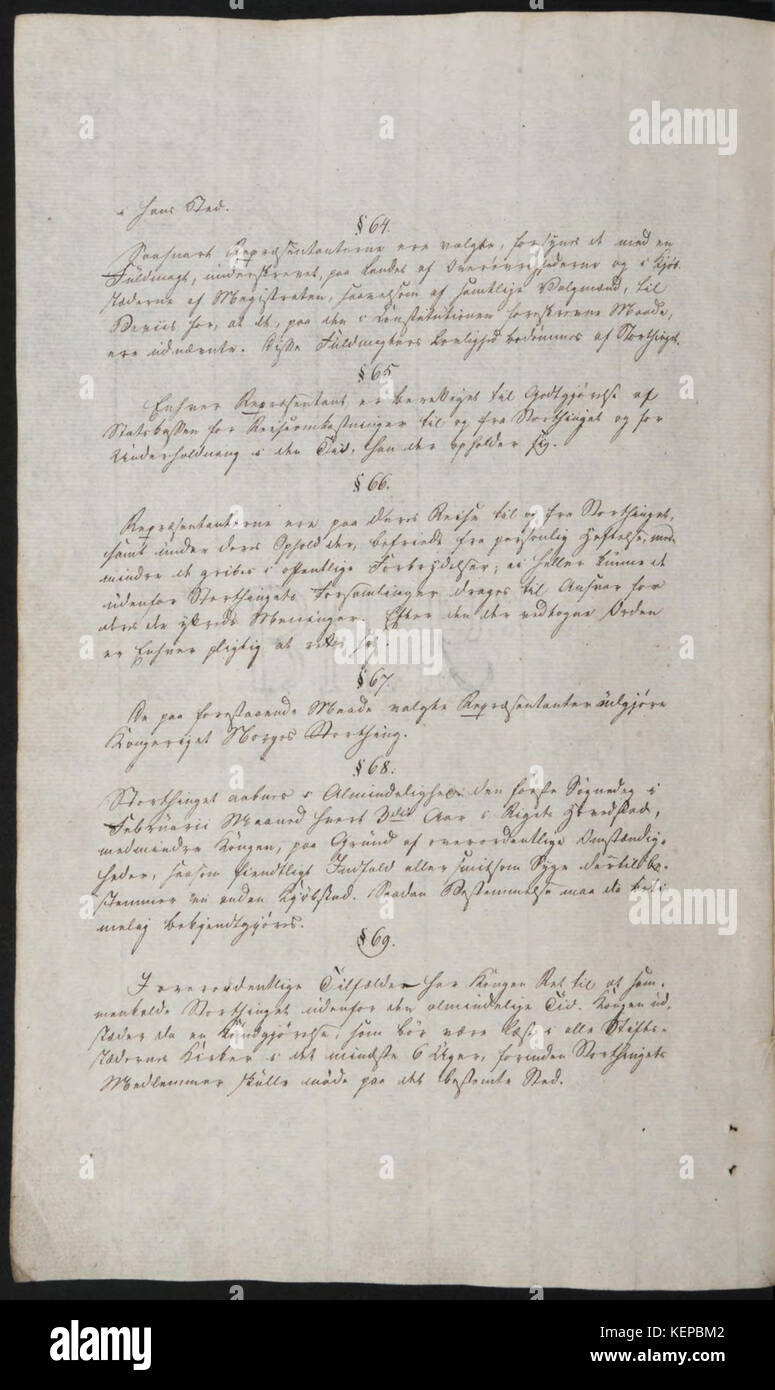 i hans Sted.
§ 64.
Saasnart Repræsentanterne ere valgte, forsynes de med en
Fuldmagt, underskrevet, paa Landet af Overøvrighederne og i Kjøb-
stæderne af Magistraten, saavelsom af samtlige Valgmænd, til
Beviis for, at de, paa den i Constitutionen foreskrevne Maade,
ere udnævnte. Disse Fuldmagters Lovlighed bedømmes af Storthinget.
§ 65
Enhver Repræsentant er berettiget til Godtgjørelse af
Statskassen for Reiseomkostninger til og fra Storthinget og for
Underholdning i den Tid, han der opholder sig.
§ 66.
Repræsentanterne ere paa deres Reise til og fra Storthinget,
samt under deres Ophold der, befriede fra personlig Heftelse, med-
mindre de gribes i offentlige Forbrydelser; ei heller kunne de
udenfor Storthingets Forsamlinger drages til Ansvar for
deres der yttrede Meninger. Efter den der vedtagne Orden
er Enhver pligtig at rette sig.
§ 67.
De paa forestaaende Maade valgte Repræsentanter udgjøre
Kongeriget Norges Storthing.
§ 68.
Storthinget aabnes i Almindelighed den første Søgnedag i
Februarii Maaned hvert 3die Aar i Rigets Hovedstad,
medmindre Kongen, paa Grund af overordentlige Omstændig-
heder, saasom fiendtligt Indfald eller smitsom Syge dertil be-
stemmer en anden Kjøbstad. Saadan Bestemmelse maa da beti-
melig bekjendtgjøres.
§ 69.
I overordentlige Tilfælde har Kongen Ret til at sam-
menkalde Storthinget udenfor den almindelige Tid. Kongen ud-
steder da en Kundgjørelse, som bør være læst i alle Stifts-
stædernes Kirker i det mindste 6 Uger, forinden Storthingets
Medlemmer skulle møde paa det bestemte Sted.
alamy
alamy
alamy
a
KEPBM2
www.alamy.com